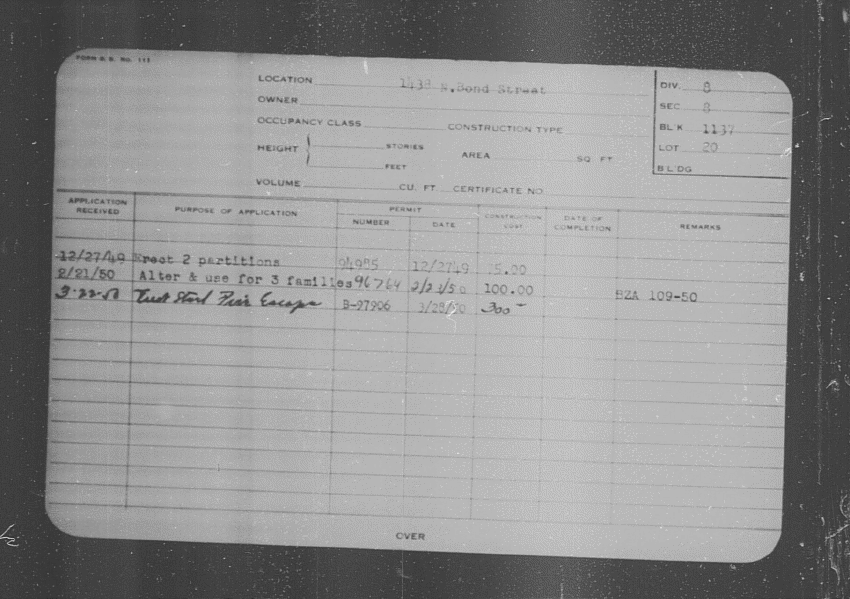 FORM B. B. No. 111
LOCATION 1438 N.Bond Street
OWNER
OCCUPANCY CLASS CONSTRUCTION TYPE
HEIGHT STORIES
FEET
AREA SQ. FT.
VOLUME CU. FT. CERTIFICATE NO.
DIV. 8
SEC 8
BL'K 1137
LOT 20
BL'DG
APPLICATION RECEIVED PURPOSE OF APPLICATION PERMIT NUMBER DATE CONSTRUCTION COST DATE OF COMPLETION REMARKS
12/27/49 Erect 2 partitions 94985 12/27/49 75.00
2/21/50 Alter & use for 3 families 96764 2/21/50 100.00 BZA 109-50
3-22-50 Steel Fire Escape B-97906 3/28/50 300-
OVER